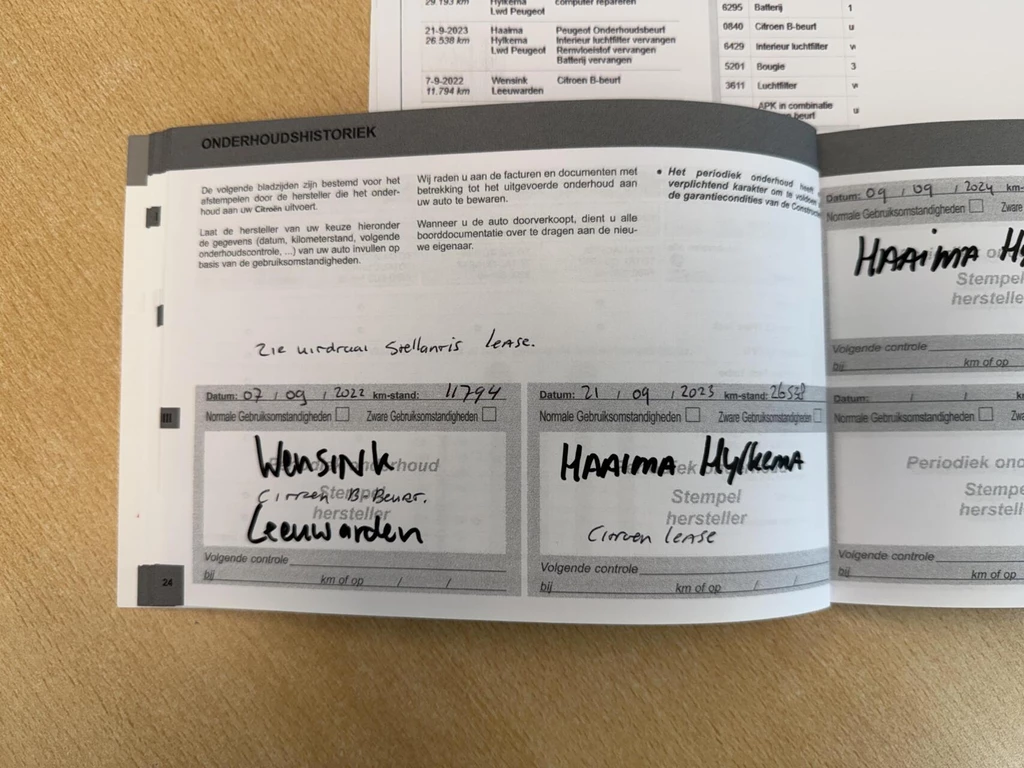 29.193 km Hylkema computer repareren
Lwd Peugeot
21-9-2023 Haaima Peugeot Onderhoudsbeurt
26.538 km Hylkema Interieur luchtfilter vervangen
Lwd Peugeot Remvloeistof vervangen
Batterij vervangen
7-9-2022 Wensink Citroen B-beurt
11.794 km Leeuwarden
6295 Batterij 1
0840 Citroen B-beurt u
6429 Interieur luchtfilter
5201 Bougie 3
3611 Luchtfilter
APK in combinatie u
beurt
ONDERHOUDSHISTORIEK
De volgende bladzijden zijn bestemd voor het
afstempelen door de hersteller die het onder-
houd aan uw Citroën uitvoert.
Laat de hersteller van uw keuze hieronder
de gegevens (datum, kilometerstand, volgende
onderhoudscontrole, ...) van uw auto invullen op
basis van de gebruiksomstandigheden.
Wij raden u aan de facturen en documenten met
betrekking tot het uitgevoerde onderhoud aan
uw auto te bewaren.
Wanneer u de auto doorverkoopt, dient u alle
boorddocumentatie over te dragen aan de nieu-
we eigenaar.
• Het periodiek onderhoud heeft
verplichtend karakter om te voldoen
de garantiecondities van de
Zie uitdraai Stellantis Lease.
Datum: 07 / 09 / 2022 km-stand: 11794
Normale Gebruiksomstandigheden Zware Gebruiksomstandigheden
Wensink
Citroen B-Beurt.
Stempel
hersteller
Leeuwarden
Volgende controle
bij km of op / /
24
Datum: 21 / 09 / 2023 km-stand: 26538
Normale Gebruiksomstandigheden Zware Gebruiksomstandigheden
HAAIMA Hylkema
Stempel
hersteller
Citroen lease
Volgende controle
bij km of op / /
Datum: 09 / 09 / 2024 km-
Normale Gebruiksomstandigheden Zware
HAAIMA
Stempel
hersteller
Volgende controle
bij km of op
Datum: / / km-
Normale Gebruiksomstandigheden
Periodiek
Volgende controle
bij km of op